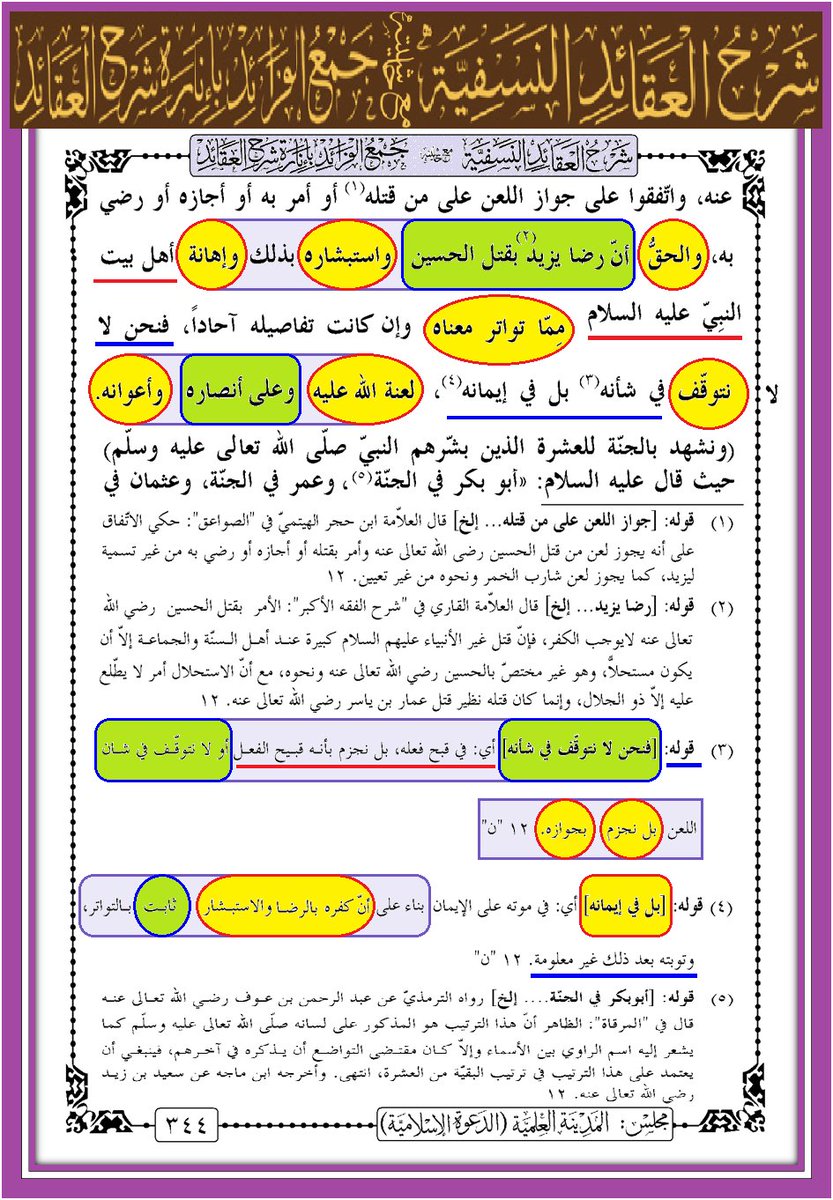 شَرْحُ العَقَائِدِ النَّسَفِيَّة مع حاشيته جَمْعُ الفَرَائِد بِإِنَارَةِ شَرْحِ العَقَائِد
شَرْحُ العَقَائِدِ النَّسَفِيَّة مع حاشيته جَمْعُ الفَرَائِد بِإِنَارَةِ شَرْحِ العَقَائِد
عنه، واتّفقوا على جواز اللعن على من قتله(١) أو أمر به أو أجازه أو رضي
به، والحقُّ أنّ رضا يزيد(٢) بقتل الحسين واستبشاره بذلك وإهانة أهل بيت
النبِيّ عليه السلام مِمّا تواتر معناه وإن كانت تفاصيله آحاداً، فنحن لا
لا نتوقّف في شأنه(٣) بل في إيمانه(٤)، لعنة الله عليه وعلى أنصاره وأعوانه.
(ونشهد بالجنّة للعشرة الذين بشّرهم النبيّ صلّى الله تعالى عليه وسلّم)
حيث قال عليه السلام: «أبو بكر في الجنّة(٥)، وعمر في الجنّة، وعثمان في
(١) قوله: [جواز اللعن على من قتله... إلخ] قال العلاّمة ابن حجر الهيتميّ في "الصواعق": حكي الاتّفاق
على أنه يجوز لعن من قتل الحسين رضى الله تعالى عنه وأمر بقتله أو أجازه أو رضي به من غير تسمية
ليزيد، كما يجوز لعن شارب الخمر ونحوه من غير تعيين. ١٢
(٢) قوله: [رضا يزيد... إلخ] قال العلاّمة القاري في "شرح الفقه الأكبر": الأمر بقتل الحسين رضي الله
تعالى عنه لايوجب الكفر، فإنّ قتل غير الأنبياء عليهم السلام كبيرة عند أهل السنّة والجماعة إلاّ أن
يكون مستحلاًّ، وهو غير مختصّ بالحسين رضي الله تعالى عنه ونحوه، مع أنّ الاستحلال أمر لا يطّلع
عليه إلاّ ذو الجلال، وإنما كان قتله نظير قتل عمار بن ياسر رضي الله تعالى عنه. ١٢
(٣) قوله: [فنحن لا نتوقّف في شأنه] أي: في قبح فعله، بل نجزم بأنه قبيح الفعل أو لا نتوقّف في شان
اللعن بل نجزم بجوازه. ١٢ "ن"
(٤) قوله: [بل في إيمانه] أي: في موته على الإيمان بناء على أنّ كفره بالرضا والاستبشار ثابت بالتواتر،
وتوبته بعد ذلك غير معلومة. ١٢ "ن"
(٥) قوله: [أبوبكر في الجنّة.... إلخ] رواه الترمذيّ عن عبد الرحمن بن عوف رضي الله تعالى عنه
قال في "المرقاة": الظاهر أنّ هذا الترتيب هو المذكور على لسانه صلّى الله تعالى عليه وسلّم كما
يشعر إليه اسم الراوي بين الأسماء وإلاّ كان مقتضى التواضع أن يذكره في آخرهم، فينبغي أن
يعتمد على هذا الترتيب في ترتيب البقيّة من العشرة، انتهى. وأخرجه ابن ماجه عن سعيد بن زيد
رضي الله تعالى عنه. ١٢
مجلس: المَدِيْنَة العِلْمِيَّة (الدَّعوة الإسْلاميَّة)
٣٤٤